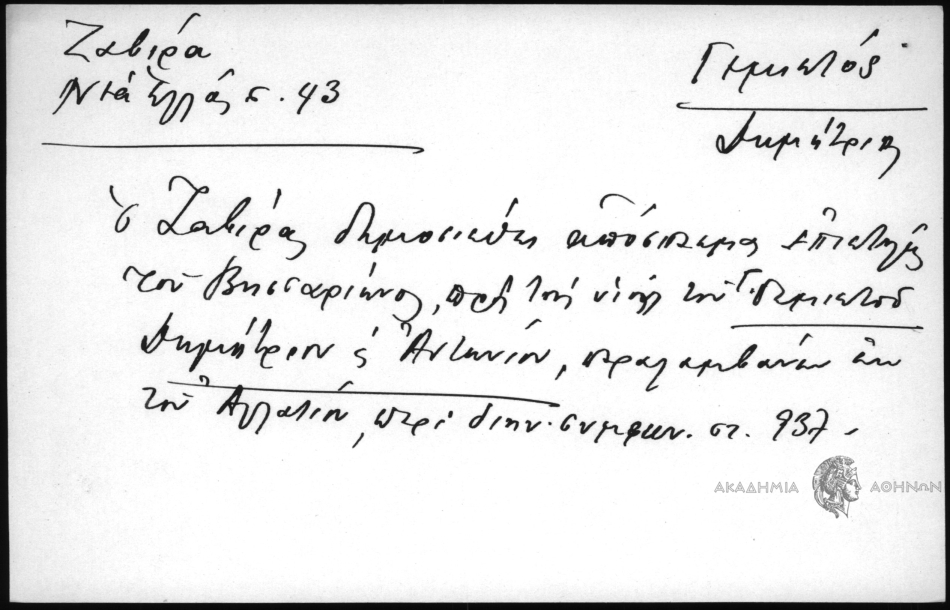 Ζαβίρα
Νέα Ἑλλάς σ. 43
Γεμιστός
Δημήτριος
ὁ Ζαβίρας δημοσιεύει ἀπόσπασμα ἐπιστολῆς
τοῦ Βησσαρίωνος, πρὸς τοὺς υἱοὺς τοῦ Γ. Γεμιστοῦ
Δημήτριον ϗ Ἀντώνιον, παραλαμβάνων ἐκ
τοῦ Ἀλλατίου, περὶ διην. συμφων. σ. 937.
ΑΚΑΔΗΜΙΑ ΑΘΗΝΩΝ